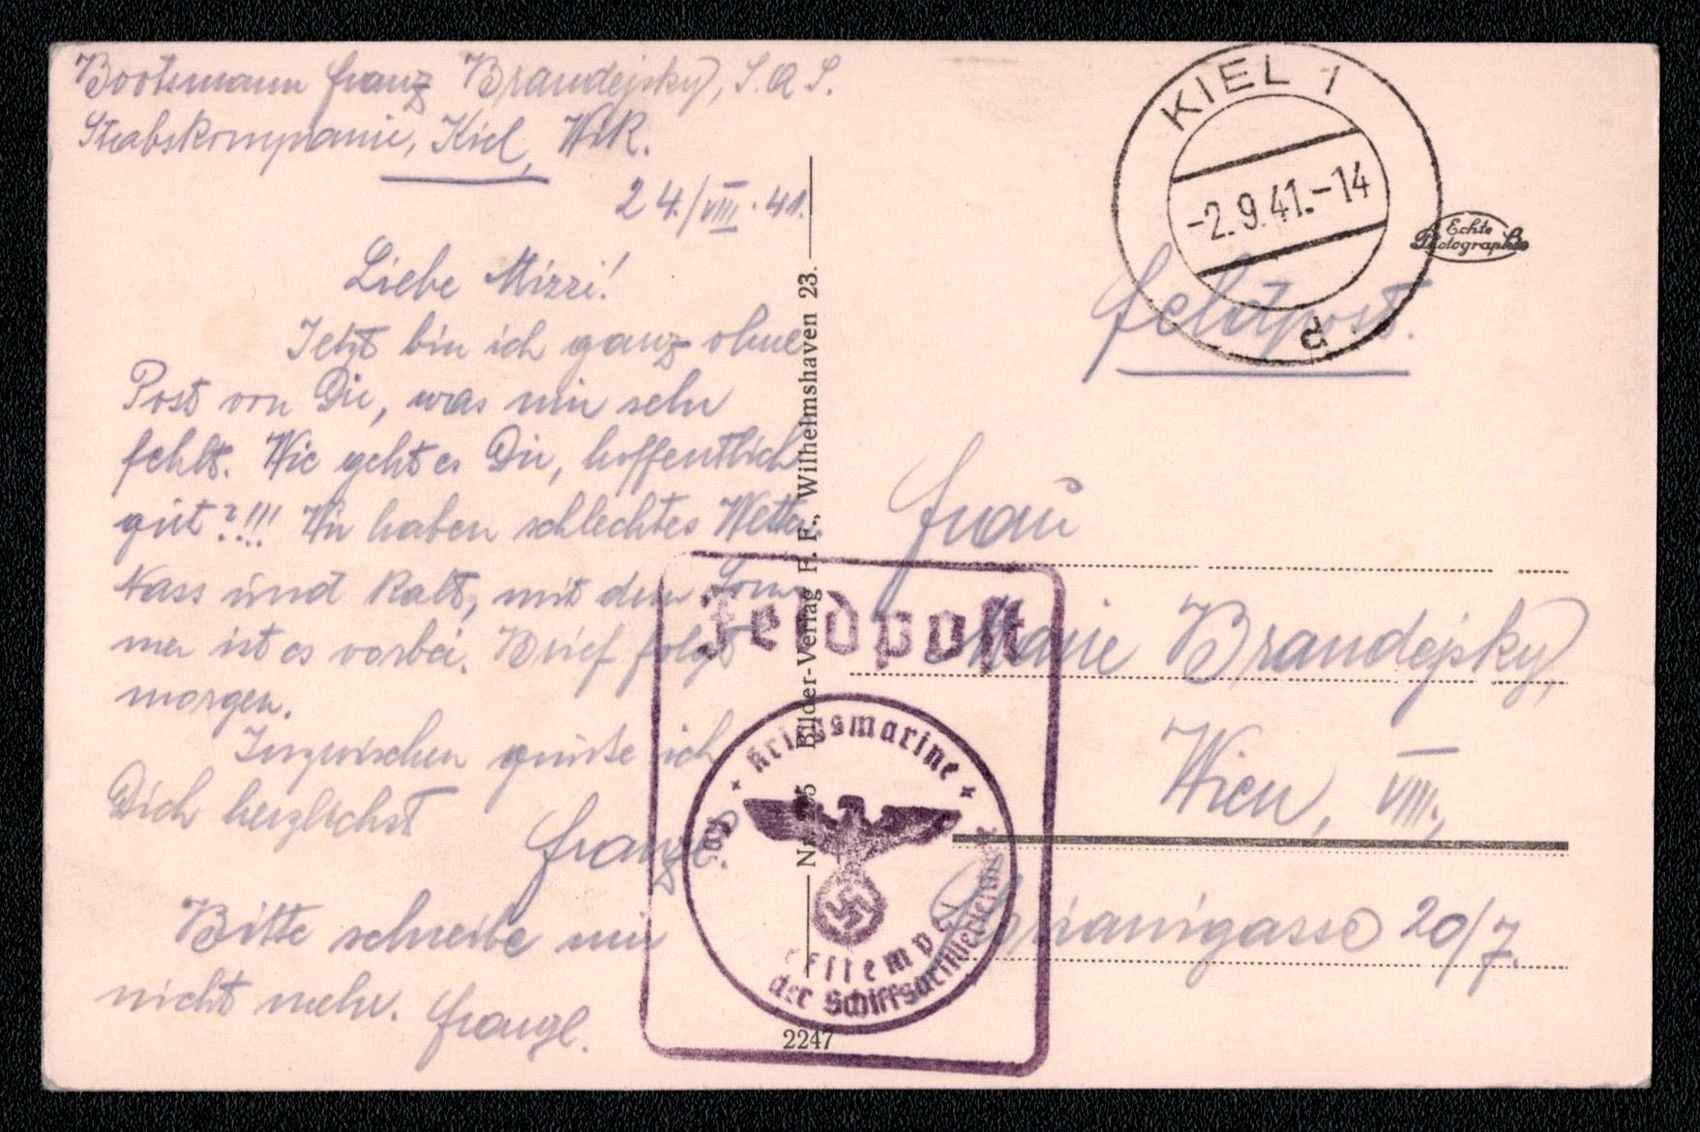 Bootsmann Franz Brandejsky, S.A.S.
Stabskompanie, Kiel, Wik.
24./VIII.41.
Liebe Mizzi!
Jetzt bin ich ganz ohne
Post von Dir, was mir sehr
fehlt. Wie geht es Dir, hoffentlich
gut?!!! Wir haben schlechtes Wetter.
Nass und kalt, mit dem Som-
mer ist es vorbei. Brief folgt
morgen.
Inzwischen grüsse ich
Dich herzlichst
Franzl.
Bitte schreibe mir
nicht mehr. Franzl.
Bilder-Verlag H. F., Wilhelmshaven 23.
2247
KIEL 1
-2.9.41.-14
Echte
Photographie
Feldpost.
Frau
Marie Brandejsky,
Wien, VIII.,
20/7.
Feldpost
Kriegsmarine
der Schiffsartillerieschule